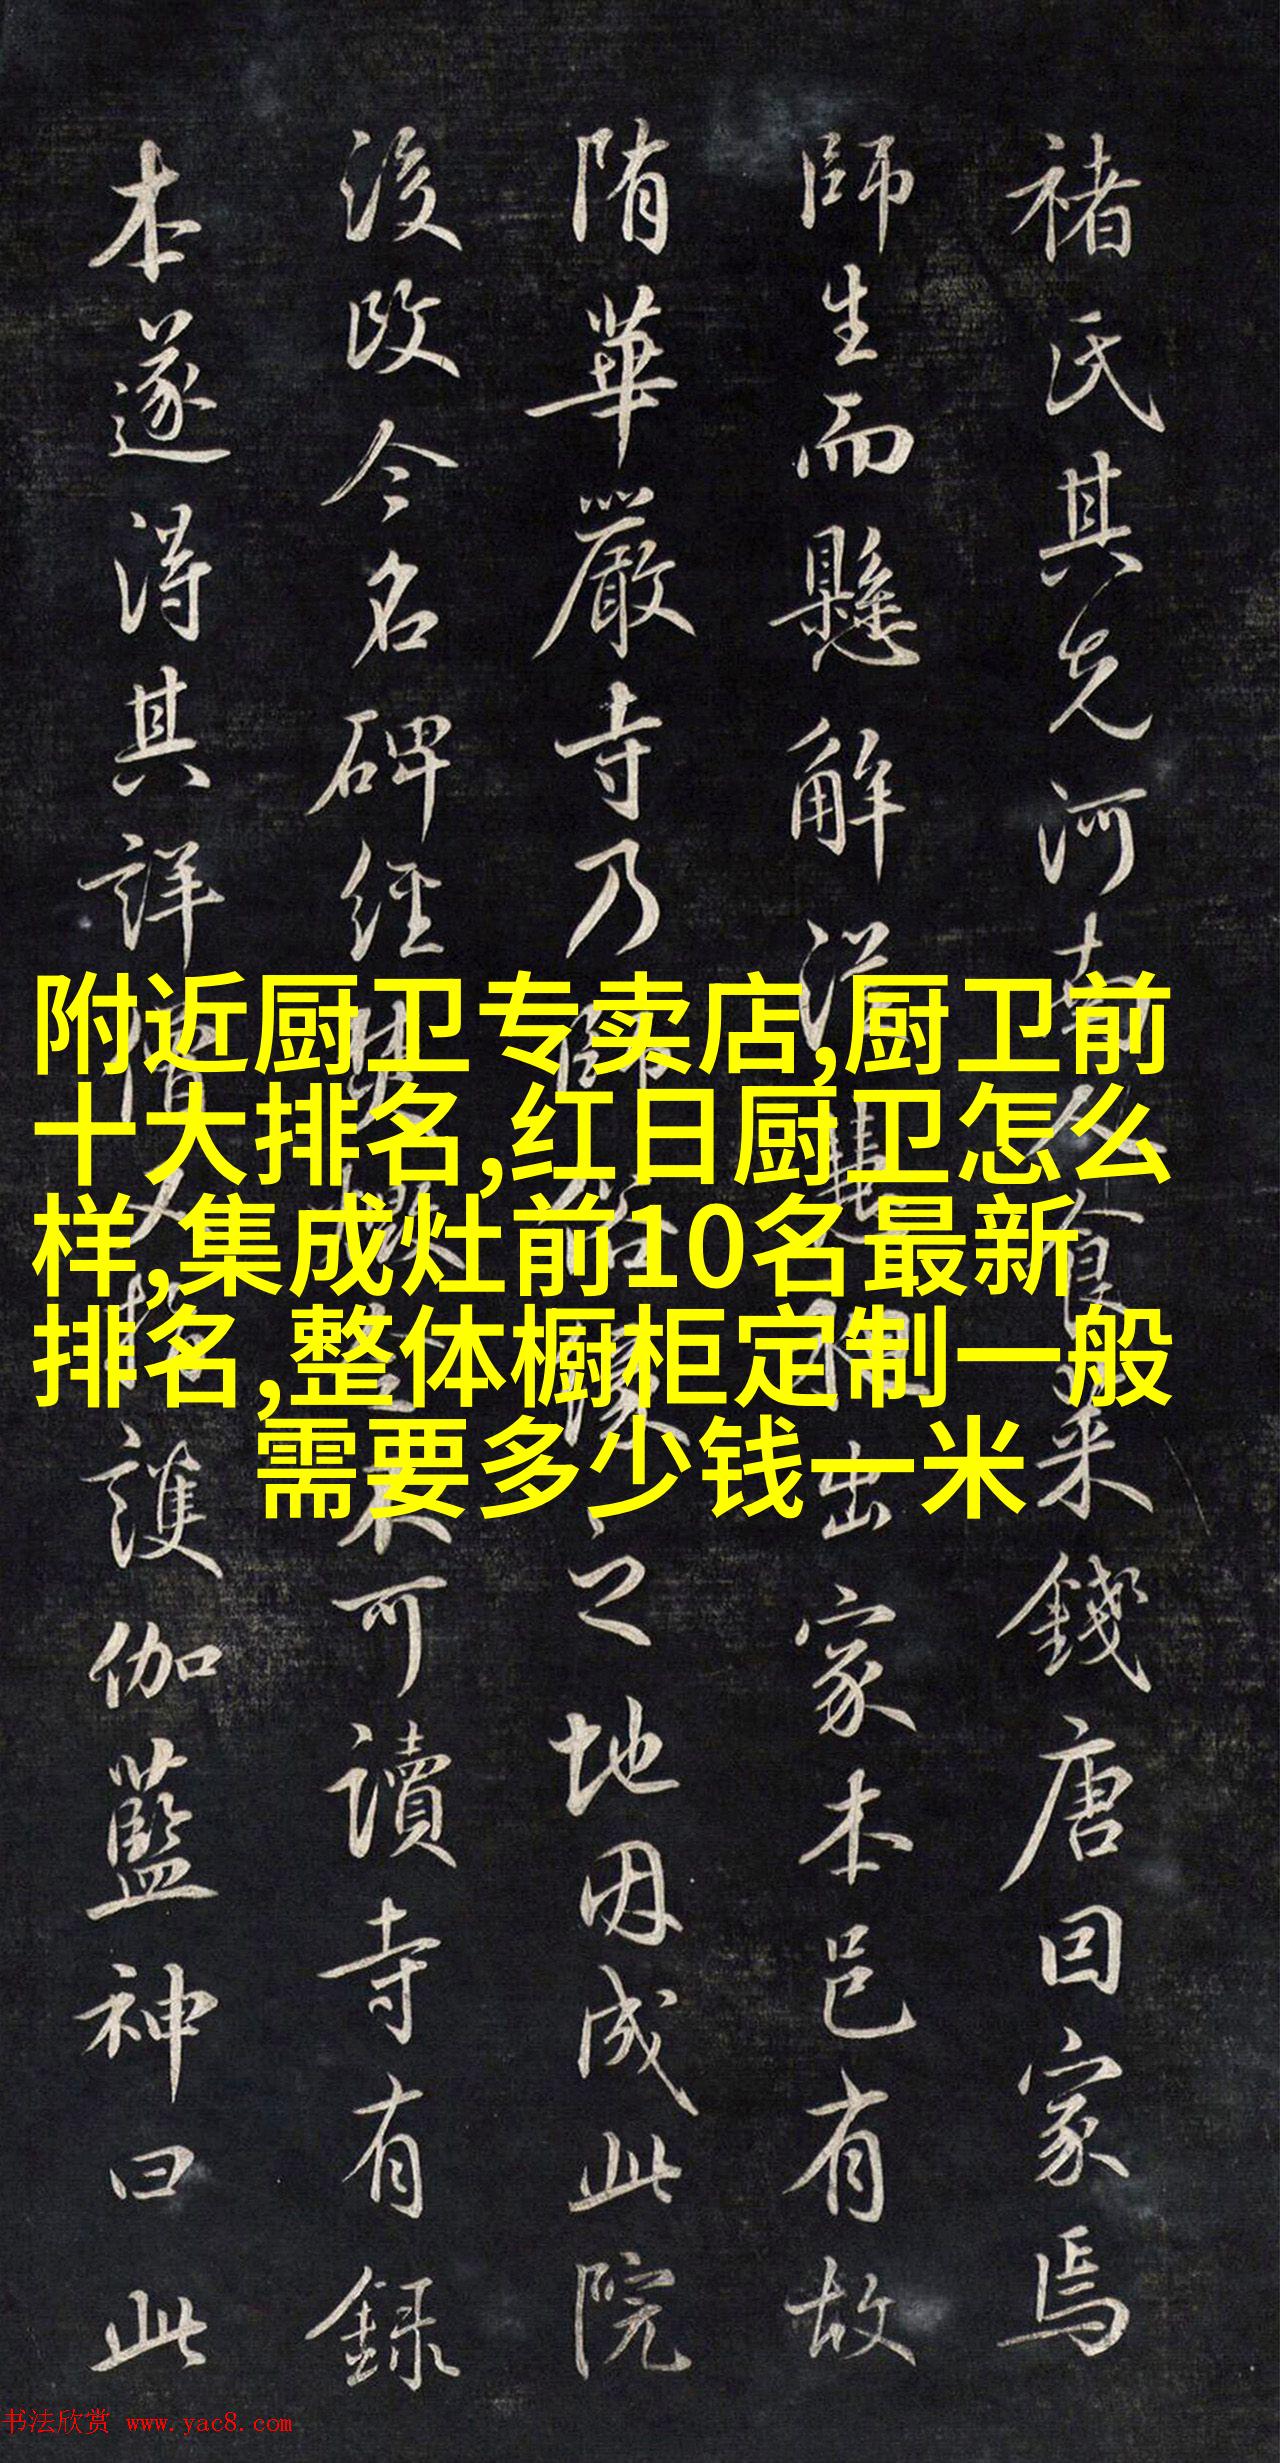 褚氏其先河南人食采錢唐因家焉
師生而懸解深慧朗出家本邑有故
隋華嚴寺乃師始之地因成此院
後改今名碑經焚不可讀寺有錄
本遂得其詳僧又護伽藍神曰此
附近厨卫专卖店,厨卫前
十大排名,红日厨卫怎么
样,集成灶前10名最新
排名,整体橱柜定制一般
需要多少钱一米
书法欣赏 www.yac8.com